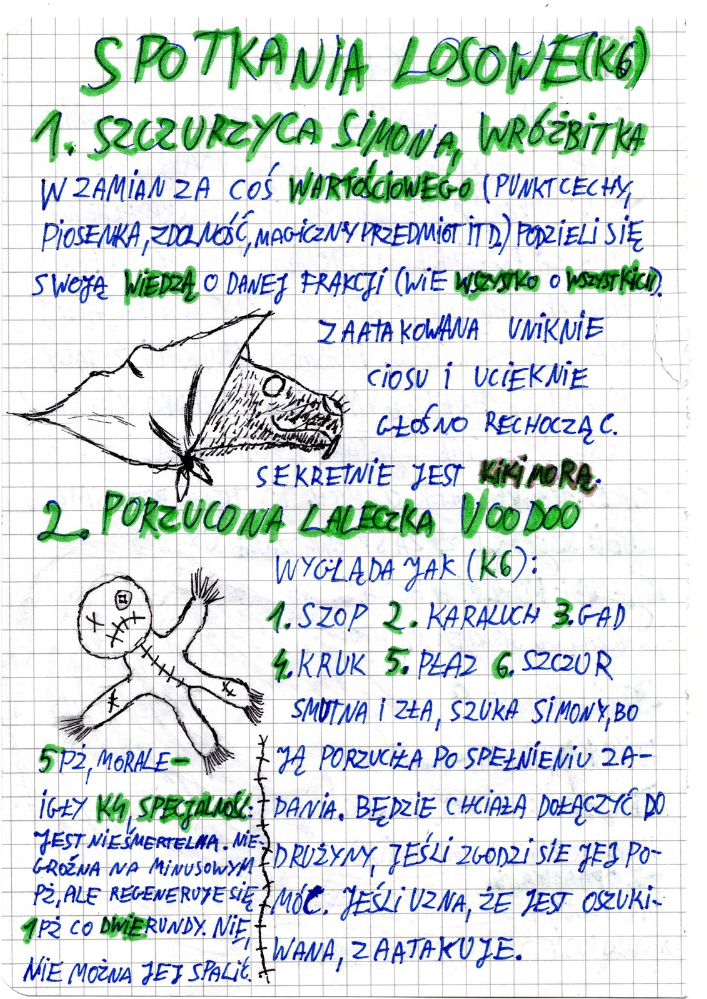 SPOTKANIA LOSOWE (K6)
1. SZCZURZYCA SIMONA, WRÓŻBITKA
W ZAMIAN ZA COŚ WARTOŚCIOWEGO (PUNKT CECHY,
PIOSENKA, ZDOLNOŚĆ, MAGICZNY PRZEDMIOT ITD.) PODZIELI SIĘ
SWOJĄ WIEDZĄ O DANEJ FRAKCJI (WIE WSZYSTKO O WSZYSTKICH).
ZAATAKOWANA UNIKNIE
CIOSU I UCIEKNIE
GŁOŚNO RECHOCZĄC.
SEKRETNIE JEST KIKIMORĄ.
2. PORZUCONA LALECZKA VOODOO
WYGLĄDA JAK (K6):
1. SZOP 2. KARALUCH 3. GAD
4. KRUK 5. PŁAZ 6. SZCZUR
SMUTNA I ZŁA, SZUKA SIMONY, BO
JĄ PORZUCIŁA PO SPEŁNIENIU ZA-
DANIA. BĘDZIE CHCIAŁA DOŁĄCZYĆ DO
DRUŻYNY, JEŚLI ZGODZI SIE JEJ PO-
MÓC. JEŚLI UZNA, ŻE JEST OSZUKI-
WANA, ZAATAKUJE.
5 PŻ, MORALE –
IGŁY K4, SPECJALNOŚĆ:
JEST NIEŚMIERTELNA. NIE-
GROŹNA NA MINUSOWYM
PŻ, ALE REGENERUJE SIĘ
1 PŻ CO DWIE RUNDY. NIE,
NIE MOŻNA JEJ SPALIĆ.